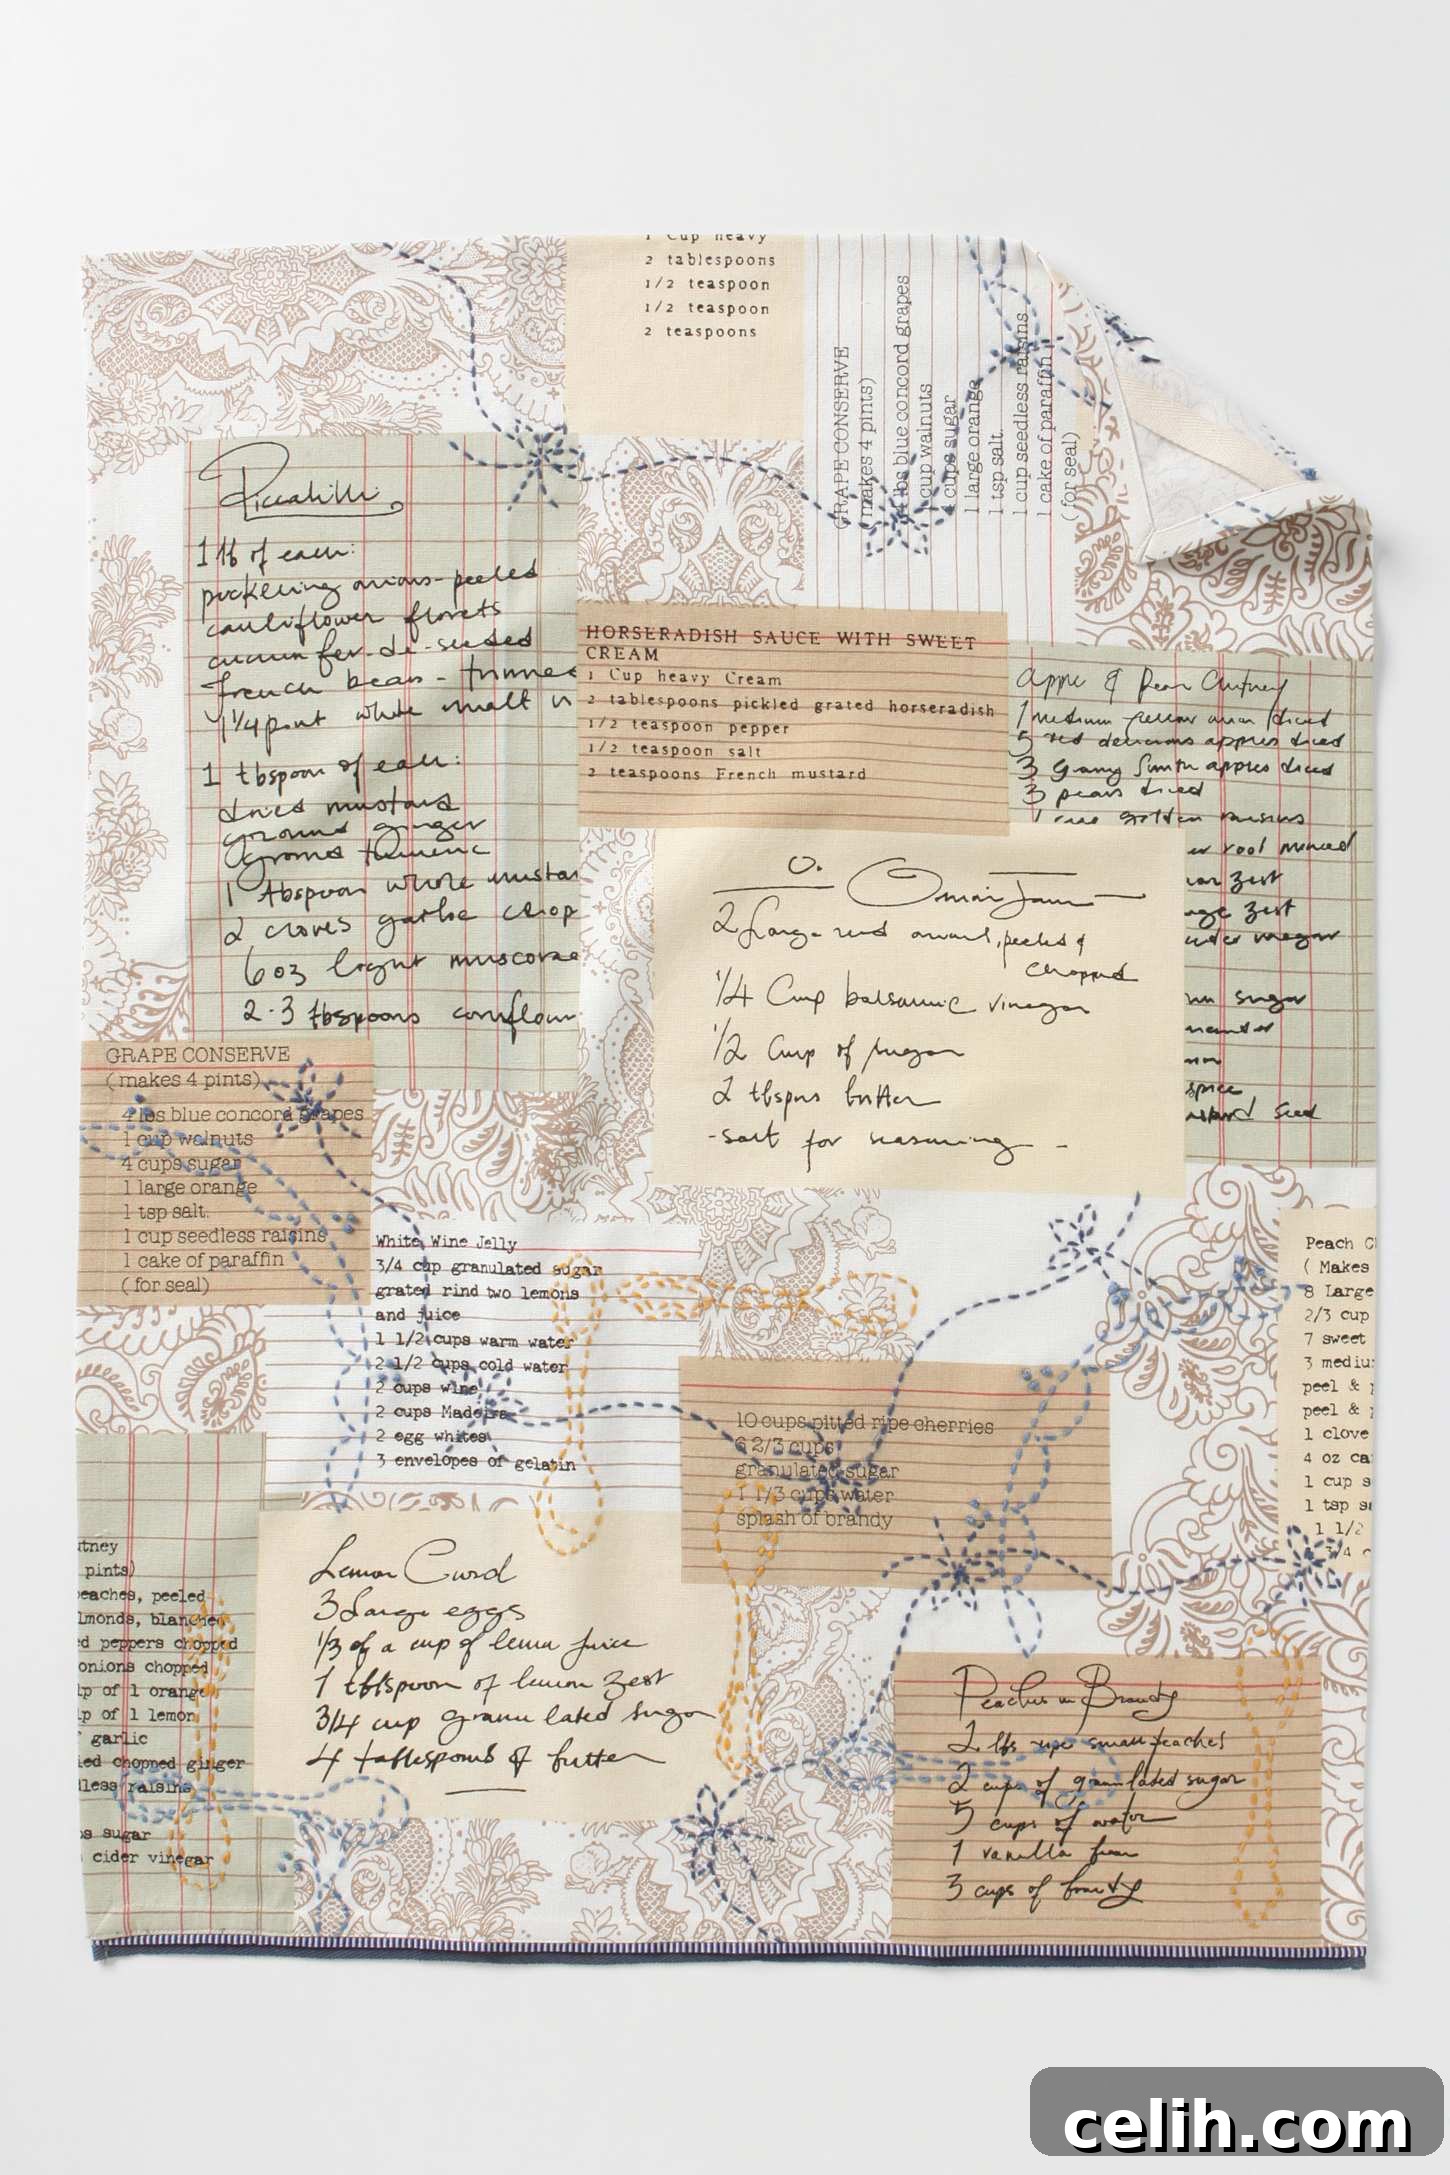 1 Cup heavy
2 tablespoons
1/2 teaspoon
1/2 teaspoon
2 teaspoons
GRAPE CONSERVE
(makes 4 pints)
4 lbs blue concord grapes
1 cup walnuts
4 cups sugar
1 large orange
1 tsp salt.
1 cup seedless raisins
1 cake of paraffin
(for seal)
Piccalilli
1 lb of each:
pickling onions-peeled
cauliflower florets
cucumber-de-seeded
french beans - trimmed
1 1/4 pint white malt
1 tbspoon of each:
dried mustard
ground ginger
ground tumeric
1 tbspoon whole mustar
2 cloves garlic chop
6 oz light muscova
2-3 tbspoons cornflour
HORSERADISH SAUCE WITH SWEET
CREAM
1 Cup heavy Cream
2 tablespoons pickled grated horseradish
1/2 teaspoon pepper
1/2 teaspoon salt
2 teaspoons French mustard
Apple & Pear Chutney
1 medium yellow onion diced
5 red delicious apples diced
3 Granny Smith apples diced
3 pears diced
golden raisins
er root minced
zest
nge zest
cider vinegar
sugar
spice
mustard seed
Onion Jam
2 Large red onions, peeled &
chopped
1/4 Cup balsamic vinegar
1/2 Cup of sugar
2 tbspns butter
-salt for seasoning -
GRAPE CONSERVE
(makes 4 pints)
4 lbs blue concord grapes
1 cup walnuts
4 cups sugar
1 large orange
1 tsp salt.
1 cup seedless raisins
1 cake of paraffin
(for seal)
White Wine Jelly
3/4 cup granulated sugar
grated rind two lemons
and juice
1 1/2 cups warm water
2 1/2 cups cold water
2 cups wine
2 cups Madeira
2 egg whites
3 envelopes of gelatin
Peach C
( Makes
8 Large
2/3 cup
7 sweet
3 mediu
peel & p
peel & p
1 clove
4 oz ca
1 cup s
1 tsp s
1 1/2
3/4 c
10 cups pitted ripe cherries
6 2/3 cups
granulated sugar
1 1/3 cups water
splash of brandy
utney
pints)
eaches, peeled
lmonds, blanched
ed peppers chopped
onions chopped
lp of 1 orange
lp of 1 lemon
garlic
ied chopped ginger
dless raisins
s sugar
cider vinegar
Lemon Curd
3 Large eggs
1/3 of a cup of lemon juice
1 tblspoon of lemon zest
3/4 cup granulated sugar
4 tablespoons of butter
Peaches in Brandy
2 lbs ripe small peaches
2 cups of granulated sugar
5 cups of water
1 vanilla bean
3 cups of brandy
celih.com